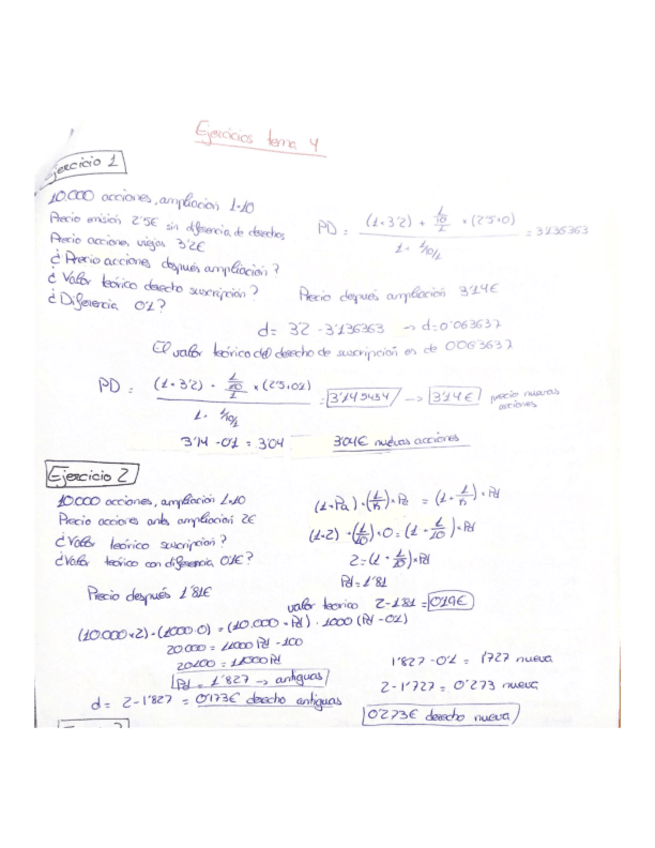 Ejercicios tema 4
Ejercicio 1
10.000 acciones, ampliación 1×10
Precio emisión 2'5€ sin diferencia de derechos
Precio acciones viejas 3'2€
¿Precio acciones después ampliación?
¿Valor teórico derecho suscripción?
¿Diferencia 0'1?
PD = (1×3'2) + 1/10/1 × (2'5+0) / 1+1/10/1 = 3'136363
Precio después ampliación 3'14€
d = 3'2 - 3'136363 → d=0'063637
El valor teórico del derecho de suscripción es de 0'063637
PD = (1×3'2) + 1/10/1 × (2'5+0'1) / 1+1/10/1 = 3'145454 → 3'14€ precio nuevas acciones
3'14 - 0'1 = 3'04 3'04€ nuevas acciones
Ejercicio 2
10.000 acciones, ampliación 1×10
Precio acciones antes ampliación 2€
¿Valor teórico suscripción?
¿Valor teórico con diferencia 0'1€?
(1×Pa) + (1/n)×Pe = (1+1/n)×Pd
(1×2) + (1/10)×0 = (1+1/10)×Pd
2=(1+1/10)×Pd
Pd=1'81
Precio después 1'81€
valor teorico 2-1'81=0'19€
(10.000×2)+(1000×0) = (10.000×Pd) + 1000(Pd-0'1)
20000 = 11000Pd - 100
20100 = 11000Pd
Pd = 1'827 → antiguas
d= 2-1'827 = 0'173€ derecho antiguas
1'827-0'1= 1'727 nueva
2-1'727 = 0'273 nueva
0'273€ derecho nueva